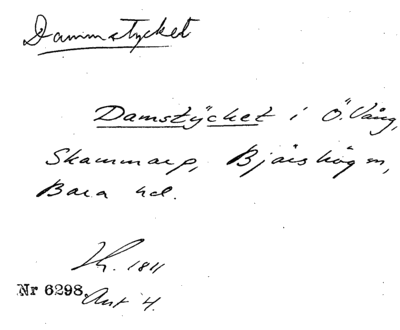 Dammstycket
Damstÿcket i Ö. Vång,
Skammarp, Bjärshög sn,
Bara hd.
Lh. 1811
Nr 6298. Akt 4.